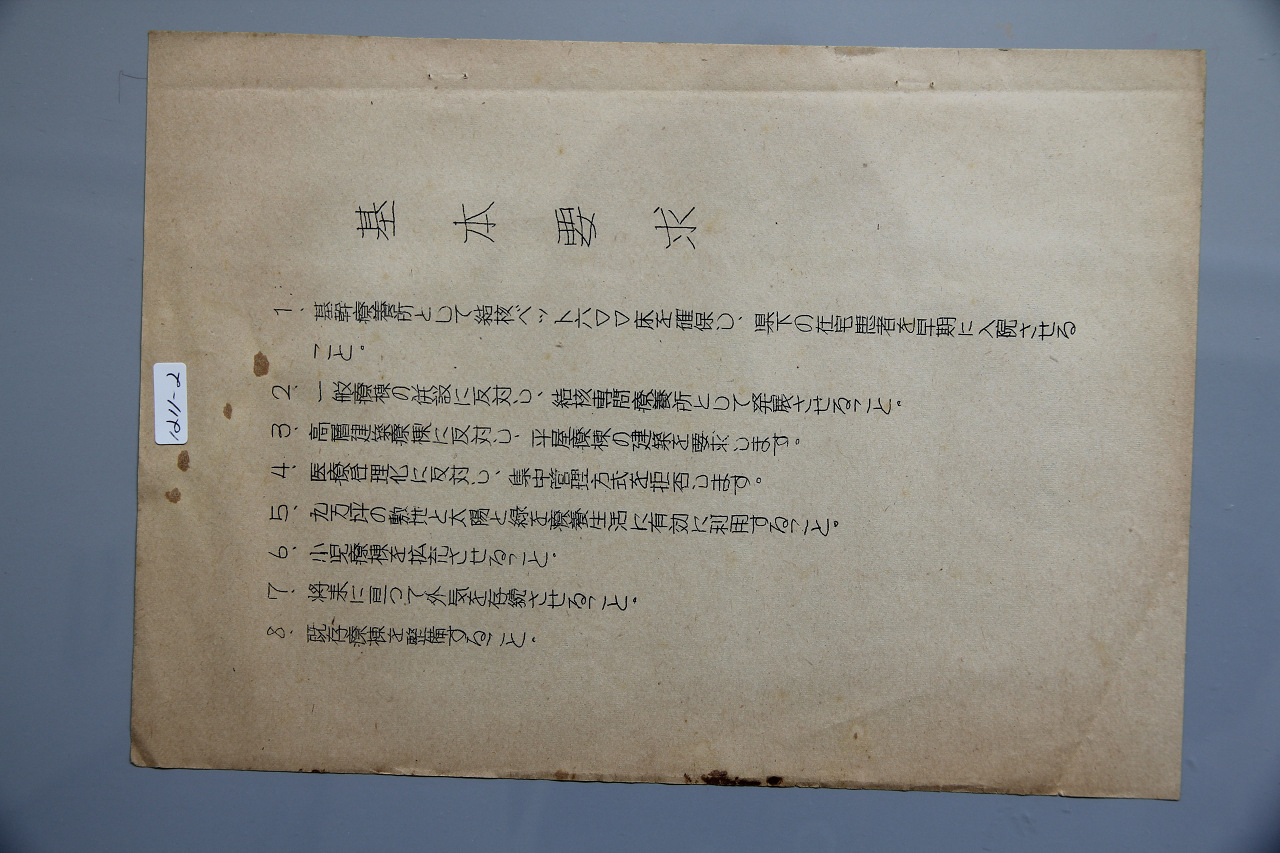 基本要求
1、基幹療養所として結核ベット六〇〇床を確保し、県下の在宅患者を早期に入院させる
こと。
2、一般療棟の併設に反対し、結核専門療養所として発展させること。
3、高層建築療棟に反対し、平屋療棟の建築を要求します。
4、医療合理化に反対し、集中管理方式を拒否します。
5、九万坪の敷地と太陽と緑を療養生活に有効に利用すること。
6、小児療棟を拡充させること。
7、将来に亘って外気を存続させること。
8、既存療棟を整備すること。
1211-2